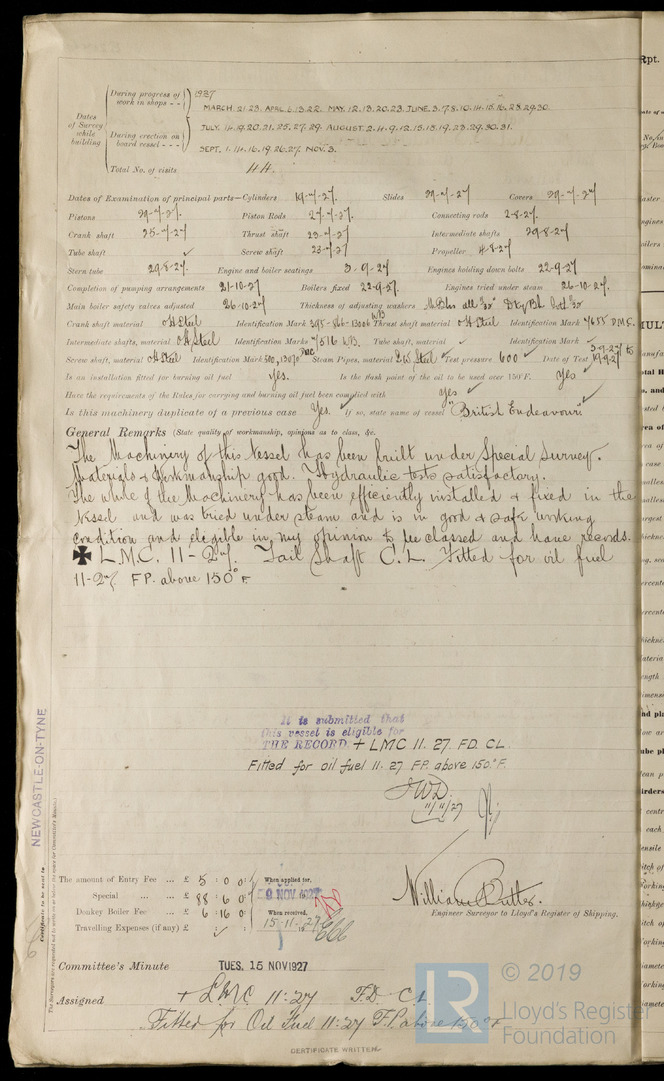 During progress of work in shops - - 1927
MARCH. 21. 23. APRIL 6. 13. 22. MAY. 12. 13. 20. 23. JUNE. 3. 7. 8. 10. 14. 15. 16. 23. 29. 30.
Dates of Survey while building
During erection on board vessel - - -
JULY. 14. 19. 20. 21. 25. 27. 29. AUGUST 2. 4. 9. 12. 15. 18. 19. 23. 29. 30. 31.
SEPT. 1. 14. 16. 19. 26. 27. NOV. 3.
Total No. of visits 44.
Dates of Examination of principal parts—Cylinders 19-7-27. Slides 29-7-27 Covers 29-7-27
Pistons 29-7-27. Piston Rods 27-7-27. Connecting rods 2-8-27.
Crank shaft 25-7-27 Thrust shaft 23-7-27 Intermediate shafts 29-8-27
Tube shaft ✓ Screw shaft 23-7-27 Propeller 4-8-27
Stern tube 29-8-27. Engine and boiler seatings 3-9-27 Engines holding down bolts 22-9-27
Completion of pumping arrangements 21-10-27 Boilers fixed 22-9-27. Engines tried under steam 26-10-27.
Main boiler safety valves adjusted 26-10-27 Thickness of adjusting washers
Crank shaft material OH Steel Identification Mark Thrust shaft material OH Steel Identification Mark 7655 D.M.C.
Intermediate shafts, material OH Steel Identification Marks 7576 W.B. Tube shaft, material ✓ Identification Mark ✓
Screw shaft, material OH Steel Identification Mark Steam Pipes, material Steel Test pressure 600 ✓ Date of Test 5-9-27 to 19-9-27
Is an installation fitted for burning oil fuel Yes. Is the flash point of the oil to be used over 150°F. Yes ✓
Have the requirements of the Rules for carrying and burning oil fuel been complied with Yes ✓
Is this machinery duplicate of a previous case Yes. ✓ If so, state name of vessel "British Endeavour" ✓
General Remarks (State quality of workmanship, opinions as to class, &c.
The Machinery of this Vessel has been built under Special Survey.
Materials & Workmanship good. Hydraulic tests satisfactory.
The whole of the Machinery has been efficiently installed & fixed in the
Vessel and was tried under steam and is in good & safe working
condition and eligible in my opinion to be classed and have records.
✠ L.M.C. 11-27. Tail Shaft C.L. Fitted for oil fuel
11-27 FP. above 150°F
It is submitted that
this vessel is eligible for
THE RECORD. + LMC 11. 27. FD. CL.
Fitted for oil fuel 11. 27 F.P. above 150°F.
11/11/27
NEWCASTLE-ON-TYNE
Certificate to be sent to
The amount of Entry Fee ... £ 5 : 0 : 0 When applied for,
Special ... £ 88 : 6 : 0 9 NOV 1927
Donkey Boiler Fee ... £ 6 : 16 : 0 When received,
Travelling Expenses (if any) £ : ✓ : 15-11-27
William Butter.
Engineer Surveyor to Lloyd's Register of Shipping.
Committee's Minute TUES. 15 NOV 1927
Assigned + LMC 11:27 F.D. C.L.
Fitted for Oil Fuel 11:27 F.P. above 150°F
CERTIFICATE WRITTEN
LR © 2019
Lloyd's Register
Foundation